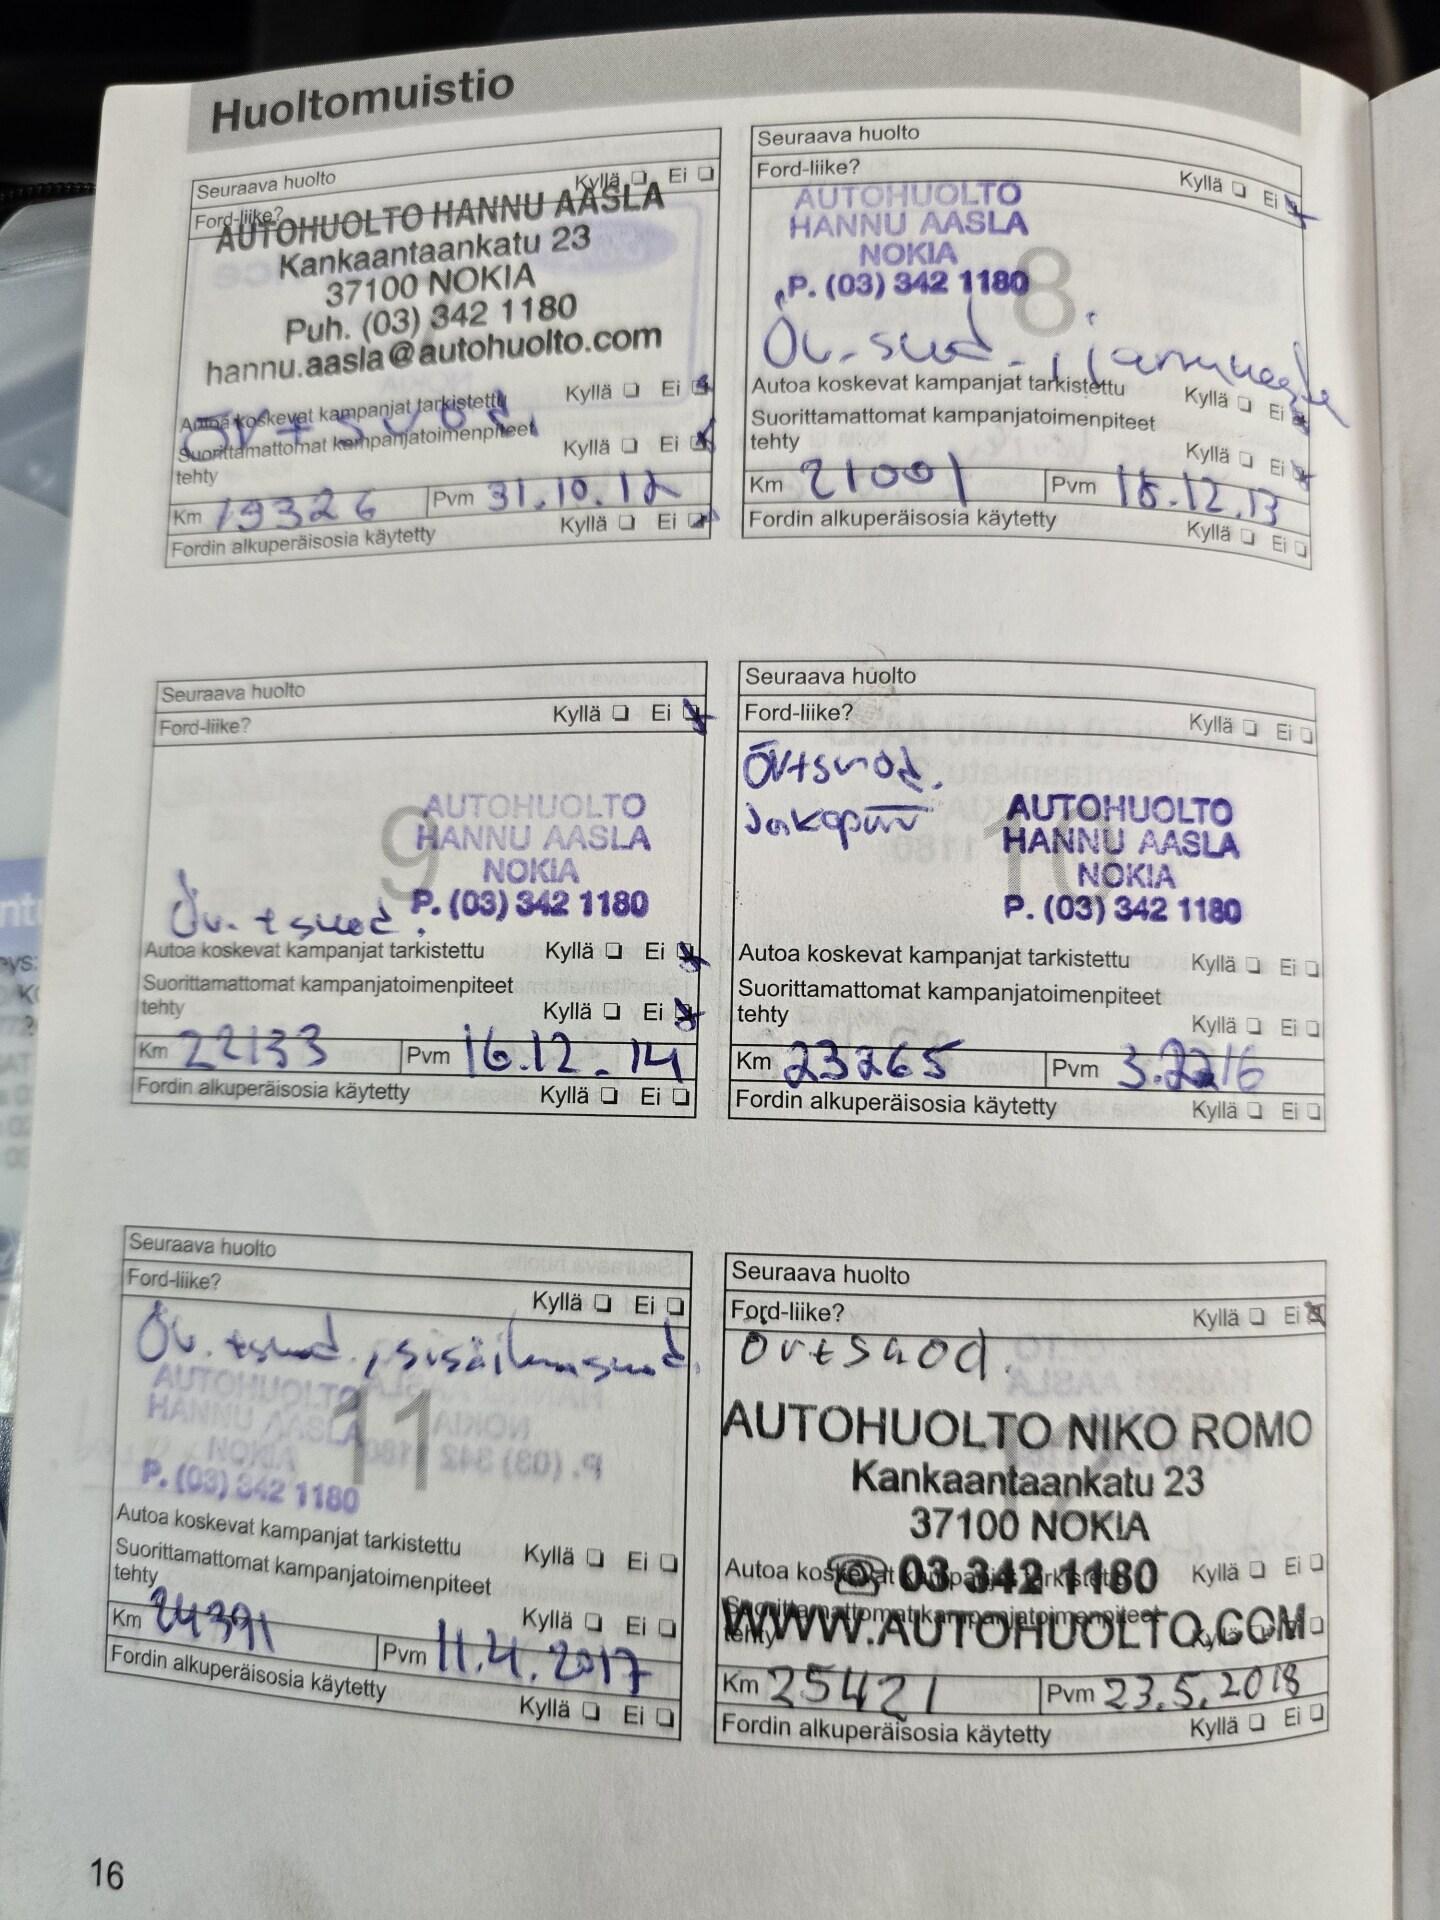 Huoltomuistio
Seuraava huolto
Ford-liike? Kyllä Ei
AUTOHUOLTO HANNU AASLA
Kankaantaankatu 23
37100 NOKIA
Puh. (03) 342 1180
hannu.aasla@autohuolto.com
Autoa koskevat kampanjat tarkistettu Kyllä Ei
Suorittamattomat kampanjatoimenpiteet
tehty Kyllä Ei
Km 19326 Pvm 31.10.12
Fordin alkuperäisosia käytetty Kyllä Ei
Seuraava huolto
Ford-liike? Kyllä Ei
8
AUTOHUOLTO
HANNU AASLA
NOKIA
P. (03) 342 1180
Autoa koskevat kampanjat tarkistettu Kyllä Ei
Suorittamattomat kampanjatoimenpiteet
tehty Kyllä Ei
Km 21001 Pvm 18.12.13
Fordin alkuperäisosia käytetty Kyllä Ei
Seuraava huolto
Ford-liike? Kyllä Ei
9
AUTOHUOLTO
HANNU AASLA
NOKIA
P. (03) 342 1180
Öv. tsuod.
Autoa koskevat kampanjat tarkistettu Kyllä Ei
Suorittamattomat kampanjatoimenpiteet
tehty Kyllä Ei
Km 22133 Pvm 16.12.14
Fordin alkuperäisosia käytetty Kyllä Ei
Seuraava huolto
Ford-liike? Kyllä Ei
Öv+suod.
10
AUTOHUOLTO
HANNU AASLA
NOKIA
P. (03) 342 1180
Autoa koskevat kampanjat tarkistettu Kyllä Ei
Suorittamattomat kampanjatoimenpiteet
tehty Kyllä Ei
Km 23265 Pvm
Fordin alkuperäisosia käytetty Kyllä Ei
Seuraava huolto
Ford-liike? Kyllä Ei
Öv. tsuod., sisäilmansuod.
11
AUTOHUOLTO
HANNU AASLA
NOKIA
P. (03) 342 1180
Autoa koskevat kampanjat tarkistettu Kyllä Ei
Suorittamattomat kampanjatoimenpiteet
tehty Kyllä Ei
Km 24391 Pvm 11.4.2017
Fordin alkuperäisosia käytetty Kyllä Ei
Seuraava huolto
Ford-liike? Kyllä Ei
öv+suod.
AUTOHUOLTO NIKO ROMO
Kankaantaankatu 23
37100 NOKIA
03 342 1180
WWW.AUTOHUOLTO.COM
Autoa koskevat kampanjat tarkistettu Kyllä Ei
Suorittamattomat kampanjatoimenpiteet
tehty Kyllä Ei
Km 25421 Pvm 23.5.2018
Fordin alkuperäisosia käytetty Kyllä Ei
16